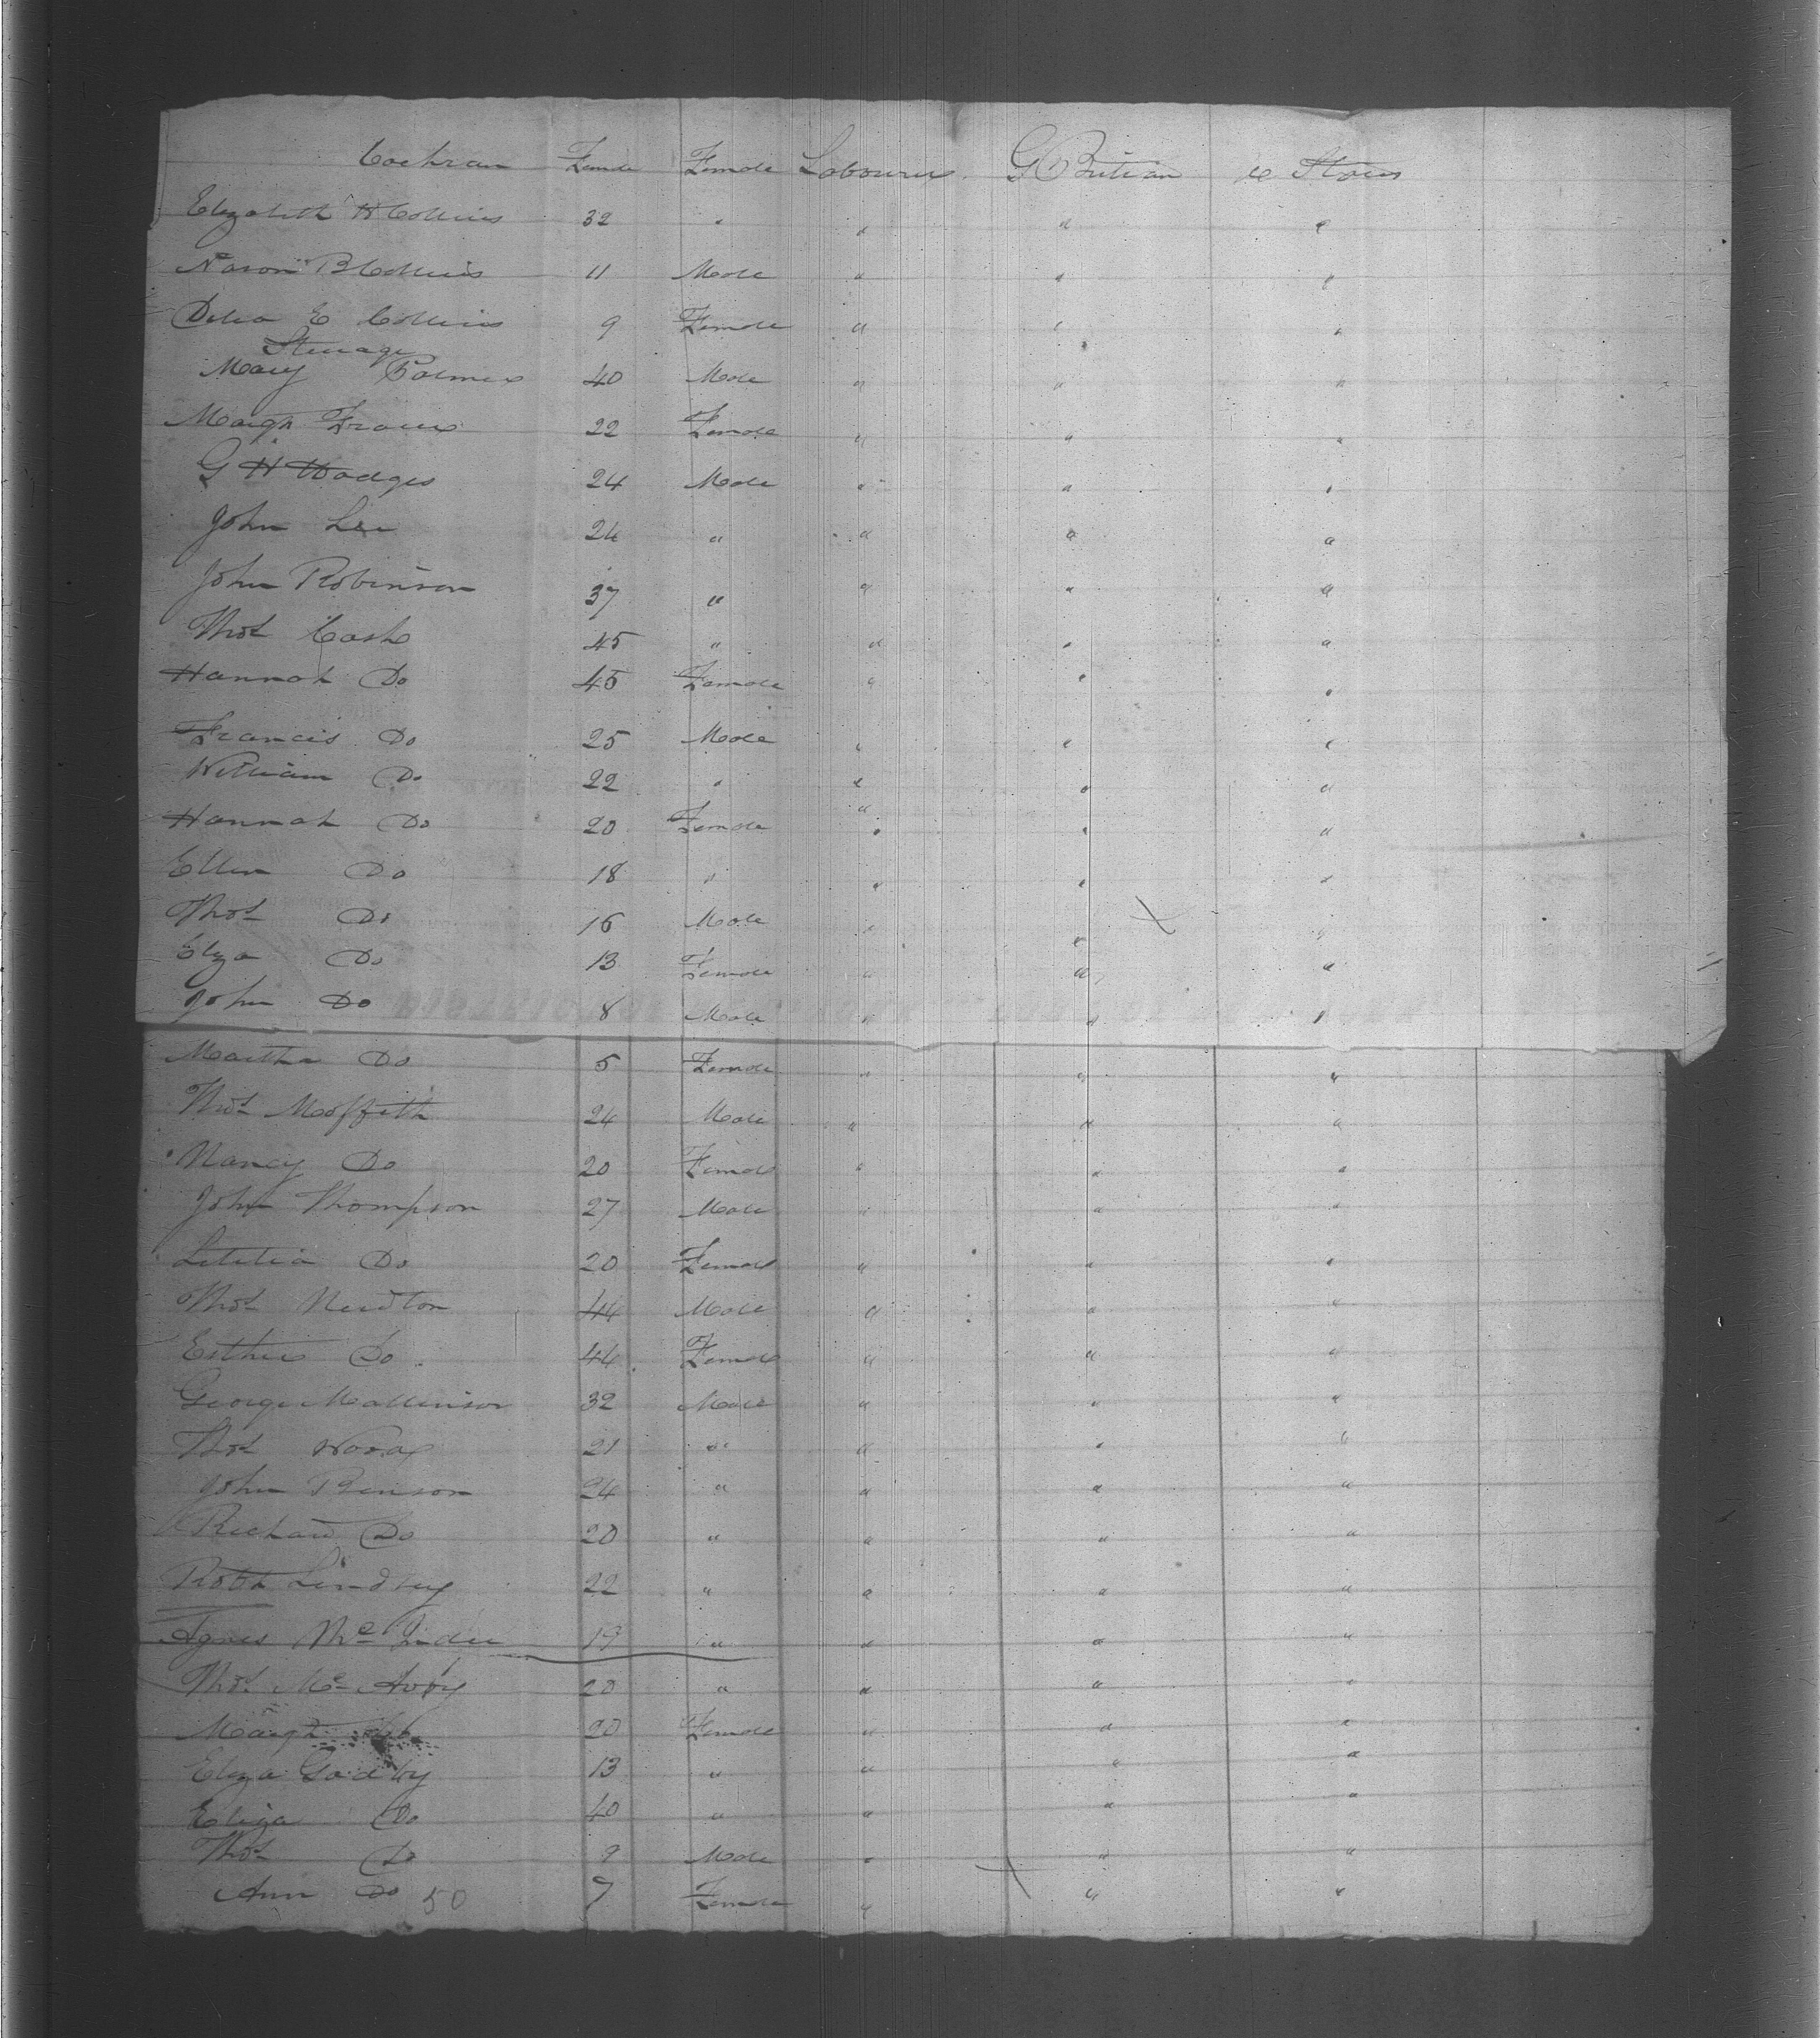 Cochran Female Female Labourer G Britian U States
Elizabeth H Collins 32 " " " "
Nason B Collins 11 Male " " "
Delia E Collins 9 Female " " "
Steerage
Mary Palmer 40 Male " " "
Margt 22 Female " " "
G H Hodges 24 Male " " "
John Lee 24 " " " "
John Robinson 37 " " " "
Thos Cash 45 " " " "
Hannah Do 45 Female " " "
Francis Do 25 Male " " "
William Do 22 " " " "
Hannah Do 20 Female " " "
Ellen Do 18 " " " "
Thos Do 16 Male " " "
Eliza Do 13 Female " " "
John Do 8 Male " " "
Martha Do 5 Female " " "
Thos Moffith 24 Male " " "
Nancy Do 20 Female " " "
John Thompson 27 Male " " "
Letitia Do 20 Female " " "
Thos Newton 44 Male " " "
Esther Do 44 Female " " "
George Mallinson 32 Male " " "
Thos 21 " " " "
John Benson 24 " " " "
Richard Do 20 " " " "
Robt Lindsey 22 " " " "
Agnes Mc 19 " " " "
Thos Mc Avoy 20 " " " "
Margt 20 Female " " "
Eliza Goadby 13 " " " "
Eliza Do 40 " " " "
Thos Do 9 Male " " "
Ann Do 50 7 Female " " "